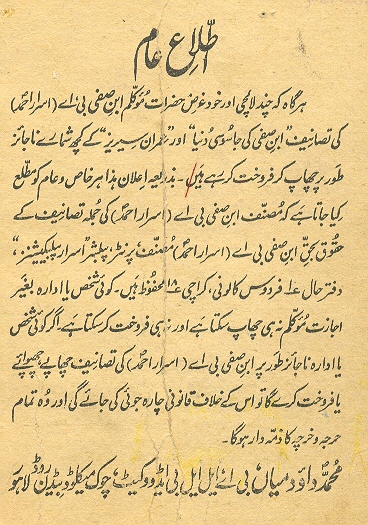 اطلاع عام
ہر گاہ کہ چند لالچی اور خود غرض حضرات مؤکلم ابن صفی بی۔اے (اسرار احمد)
کی تصانیف "ابن صفی کی جاسوسی دُنیا" اور "عمران سیریز" کے کچھ شمارے ناجائز
طور پر چھاپ کر فروخت کر رہے ہیں۔ بذریعہ اعلان ہذا ہر خاص و عام کو مطلع
کیا جاتا ہے کہ مُصنّف ابن صفی بی۔اے (اسرار احمد) کی جُملہ تصانیف کے
حقوق بحقِ ابن صفی بی۔اے (اسرار احمد) مُصنّف، پرنٹر، پبلشر "اسرار پبلیکیشنز"،
دفتر حال ۱ے فردوس کالونی، کراچی ۱۸ محفوظ ہیں۔ کوئی شخص یا ادارہ بغیر
اجازت مؤکلم نہ ہی چھاپ سکتا ہے اور نہ ہی فروخت کر سکتا ہے۔ اگر کوئی شخص
یا ادارہ ناجائز طور پر ابن صفی بی۔اے (اسرار احمد) کی تصانیف چھاپے، چھپوائے
یا فروخت کرے گا تو اس کے خلاف قانونی چارہ جوئی کی جائے گی اور وُہ تمام
حرجہ و خرچہ کا ذمّہ دار ہوگا۔
مُحمّد داؤد میاں، بی۔اے ایل ایل بی ایڈووکیٹ، چوک میکلوڈ بیڈن روڈ لاہور